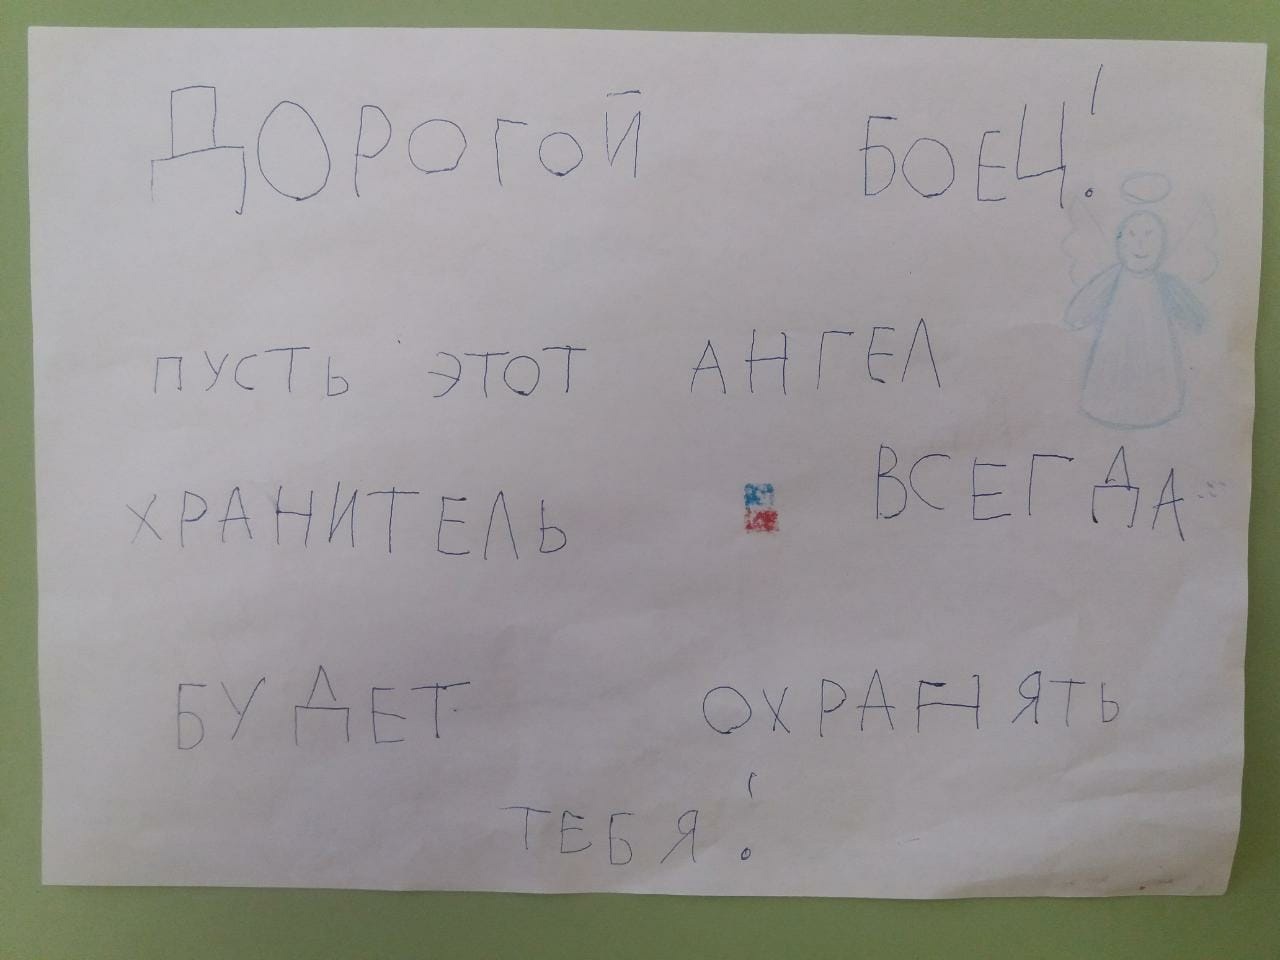 ДОРОГОЙ БОЕЦ!
ПУСТЬ ЭТОТ АНГЕЛ
ХРАНИТЕЛЬ ВСЕГДА
БУДЕТ ОХРАНЯТЬ
ТЕБЯ!